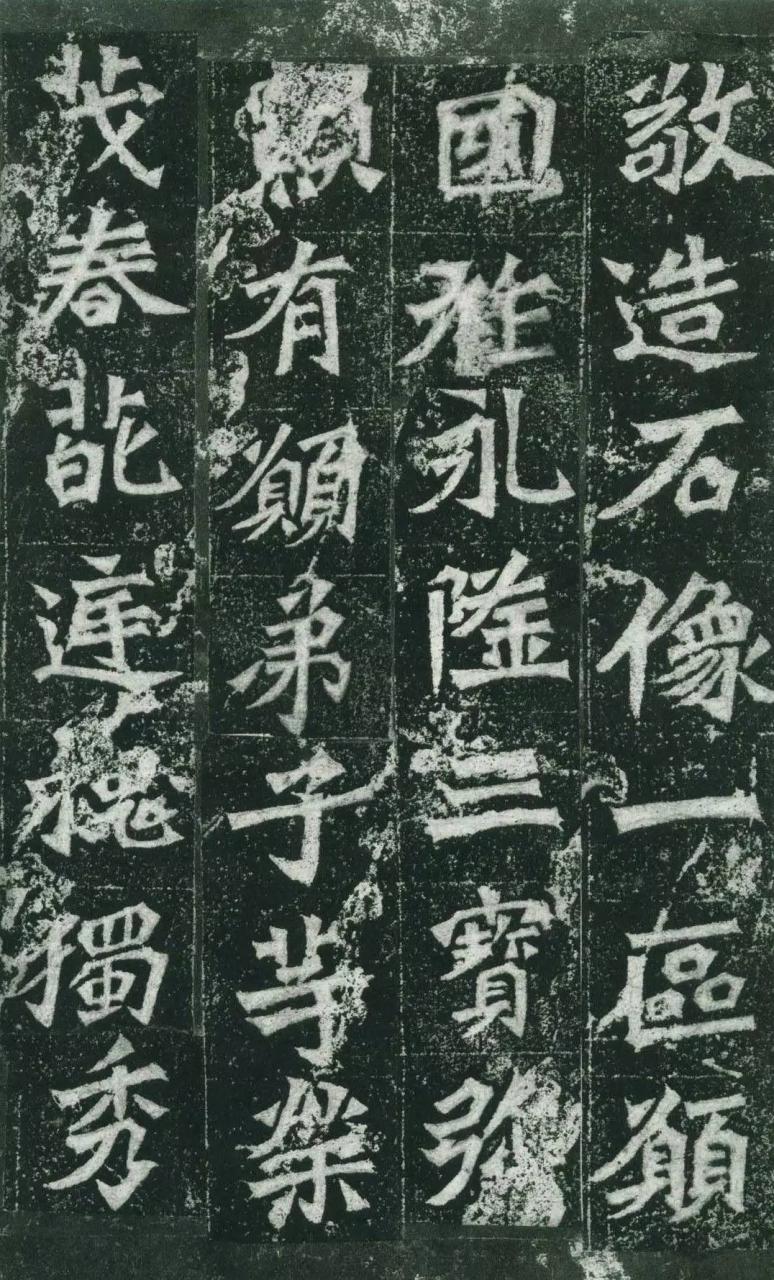 敬造石像一區願
國祚永隆三寶彌
顯有願弟子等榮
茂春葩庭槐獨秀